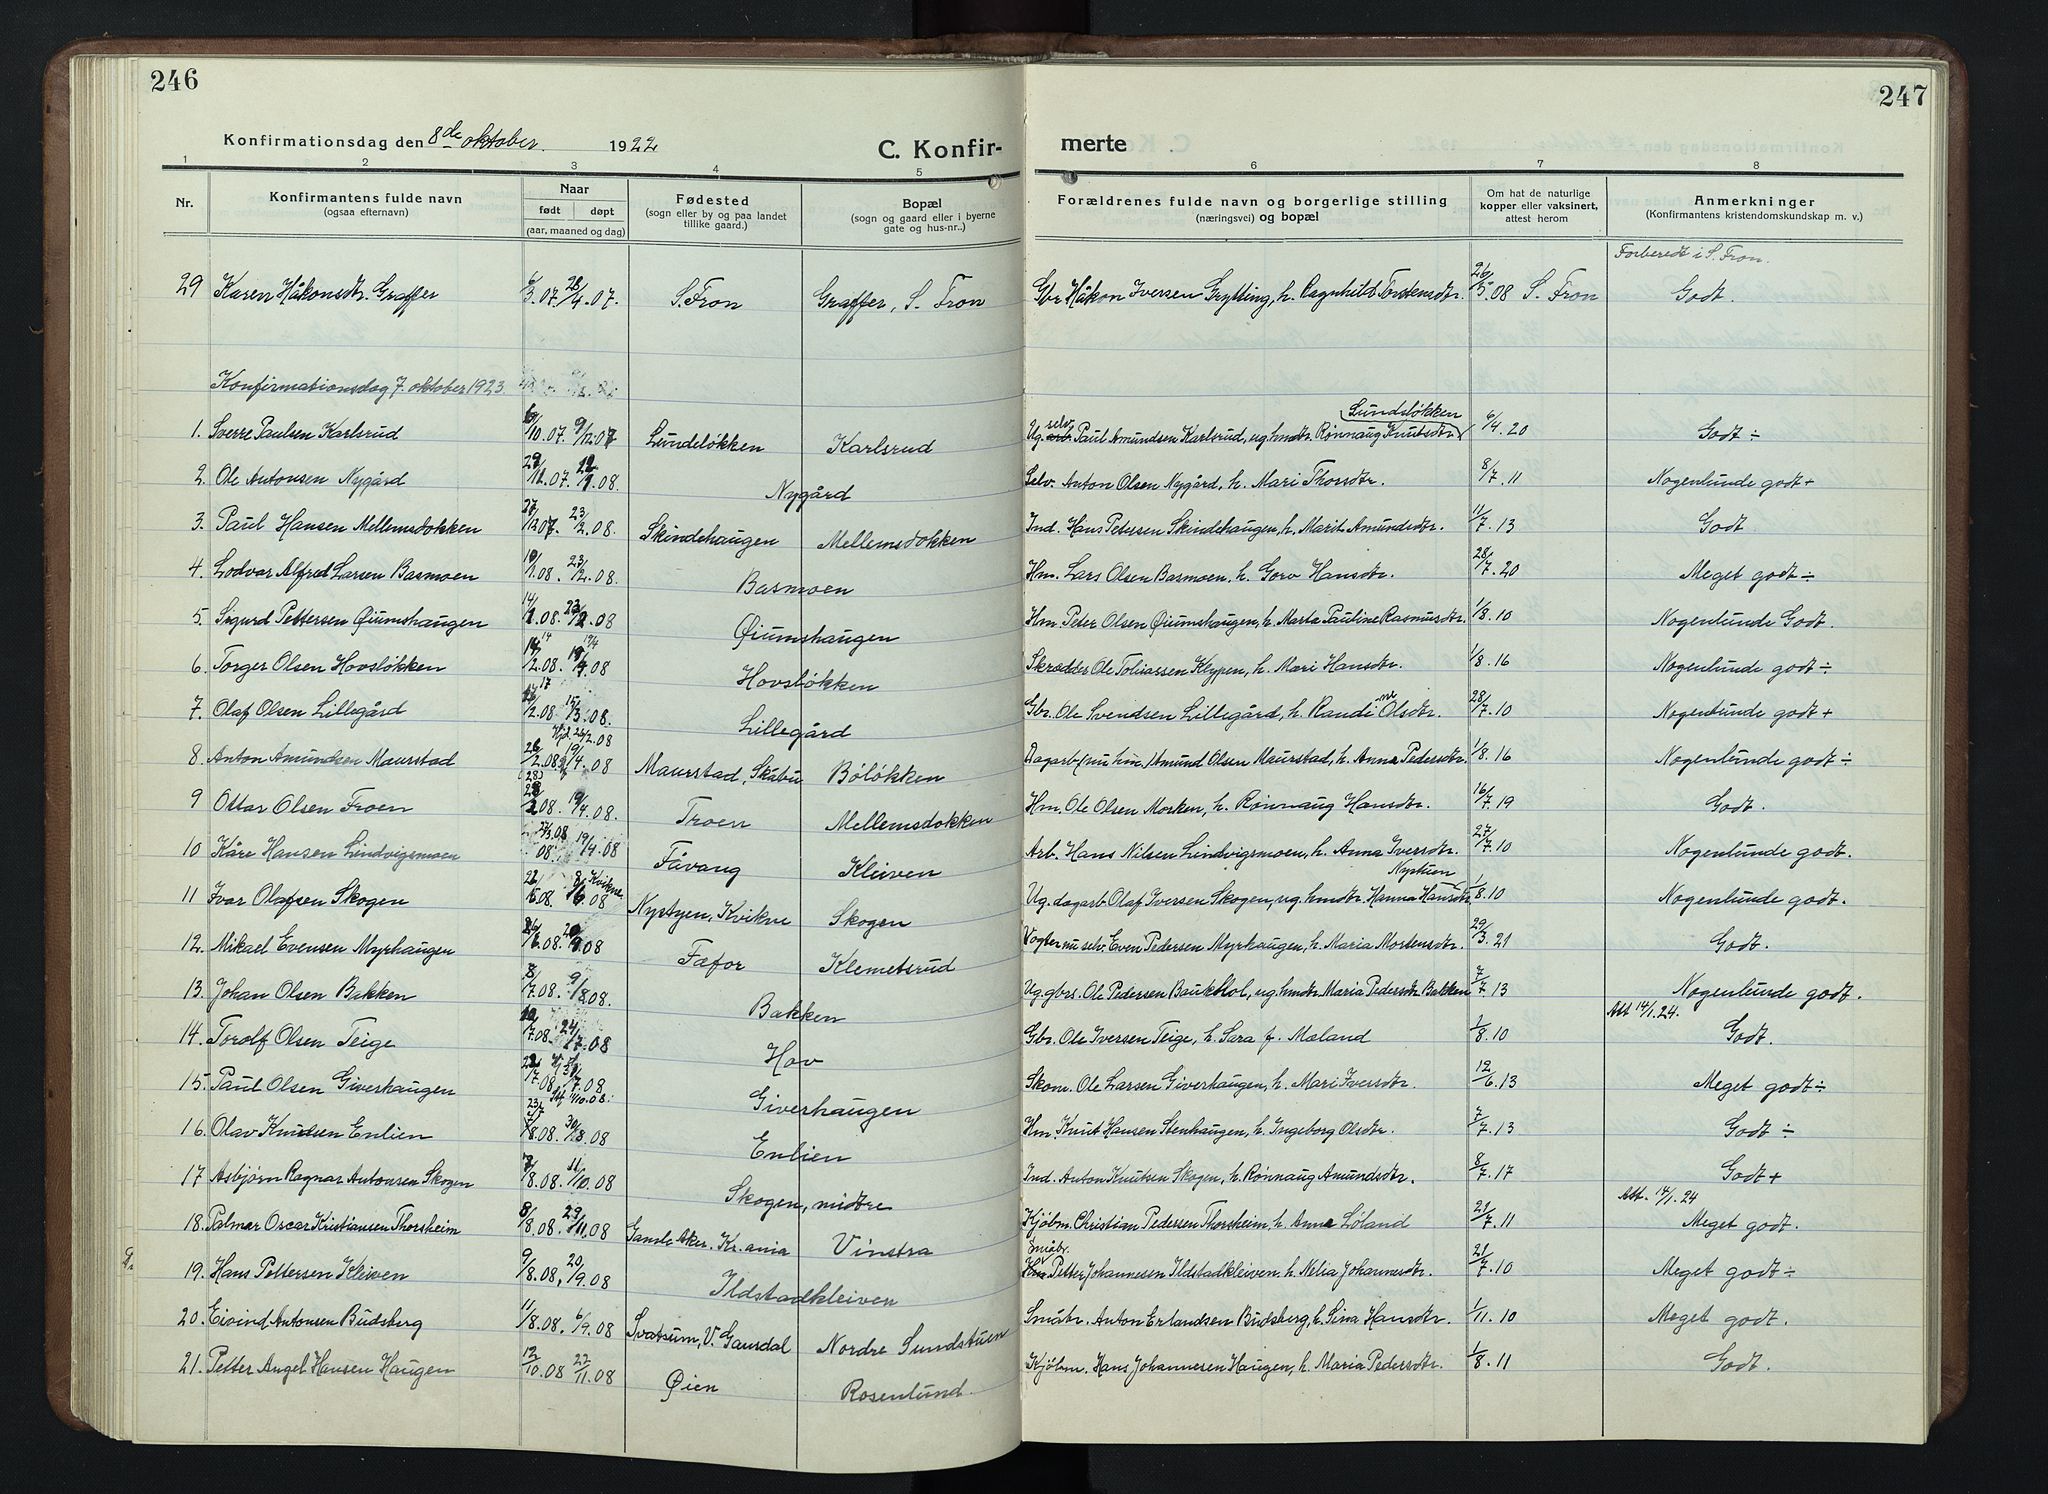 246
247
Konfirmationsdag den 8de oktober 1922
C. Konfir-
merte
1 2 3 4 5 6 7 8
Nr.
Konfirmantens fulde navn
(ogsaa efternavn)
Naar
født døpt
(aar, maaned og dag)
Fødested
(sogn eller by og paa landet
tillike gaard.)
Bopæl
(sogn og gaard eller i byerne
gate og hus-nr..)
Forældrenes fulde navn og borgerlige stilling
(næringsvei) og bopæl
Om hat de naturlige
kopper eller vaksinert,
attest herom
Anmerkninger
(Konfirmantens kristendomskundskap m. v.)
Forberedt i S. Fron.
29 Karen Håkonsdtr. Graffer 6/3.07. 28/4.07. S. Fron Graffer, S. Fron Gbr Håkon Iversen Grytting, h. Ragnhild Torstensdtr. 26/5.08 S. Fron Godt.
Konfirmationsdag 7. oktober 1923.
Lundsløkken
1. Sverre Paulsen Karlsrud /10.07. 9/12.07 Lundsløkken Karlsrud Ug. selv. Paul Amundsen Karlsrud, ug hmdtr. Rønnaug Knutsdtr. 6/4.20 Godt ÷
2. Ole Antonsen Nygård Nygård Selv. Anton Olsen Nygård, h. Mari Thorsdtr. 8/7.11 Nogenlunde godt +
3. Paul Hansen Mellemsdokken 27/12.07. 23/2.08. Skindehaugen Mellemsdokken Ind. Hans Petersen Skindehaugen, h. Marit Amundsdtr. 11/7.13 Godt
4. Lodvar Alfred Larsen Basmoen 19/1.08. 23/2.08. Basmoen Hm. Lars Olsen Basmoen, h. Goro Hansdtr. 28/7.20 Meget godt ÷
5. Sigurd Pettersen Øiumshaugen 14/2.08. 23/2.08 Øiumshaugen Hm. Peter Olsen Øiumshaugen, h. Marta Pauline Rasmusdtr. 1/8.10 Nogenlunde Godt.
6. Torger Olsen Hovsløkken 14/2.08. 19/4.08 Hovsløkken Skrædder Ole Tobiassen Klypen, h. Mari Hansdtr. 1/8.16 Nogenlunde godt ÷
7. Olaf Olsen Lillegård 17/2.08. 15/3.08. Lillegård Gbr. Ole Svendsen Lillegård, h. Randi Olsdtr. 28/7.10 Nogenlunde godt +
8 Anton Amundsen Maurstad 26/2.08 19/4.08 Maurstad, Skåbu Bøløkken Dagarb. (nu hm.) Amund Olsen Maurstad, h. Anna Pedersdtr. 1/8.16 Nogenlunde godt ÷
9 Ottar Olsen Troen 28/2.08. 19/4.08. Troen Mellemsdokken Hm. Ole Olsen Morken, h. Rønnaug Hansdtr. 16/7.19 Godt.
10 Kåre Hansen Lindvigsmoen 27/3.08 19/4.08 Fåvang Kleiven Arb. Hans Nilsen Lindvigsmoen, h. Anna Iversdtr. 27/7.10 Nogenlunde godt.
Nystuen
11 Ivar Olafsen Skogen 22/5.08 8/6.08 Kvikne Nystyen, Kvikne Skogen Ug. dagarb. Olaf Iversen Skogen, ug. hmdtr. Hanna Hansdtr. 1/8.10 Nogenlunde godt.
12. Mikael Evensen Myrhaugen 26/6.08. Fæfor Klemetsrud Vogter nu selv. Even Pedersen Myrhaugen, h. Maria Mortensdtr. 29/3.21 Godt.
13. Johan Olsen Bakken 3/7.08. 9/8.08. Bakken Ug. gbrs. Ole Pedersen Baukhol, ug. hmdtr. Maria Pedersdtr Bakken 7/7.13 Nogenlunde godt.
Att 14/1.24.
14. Torolf Olsen Teige /7.08. 24/7.08 Hov Gbr. Ole Iversen Teige, h. Sara f. Maland 1/8.10 Godt.
15. Paul Olsen Giverhaugen 22/7.08. /7.08 Giverhaugen Skom. Ole Larsen Giverhaugen, h. Mari Iversdtr. 12/6.13 Meget godt ÷
16. Olav Knutsen Enlien /8.08. 30/8.08 Enlien Hm. Knut Hansen Stenhaugen, h. Ingeborg Olsdtr. 7/7.13 Godt ÷
17 Asbjørn Ragnar Antonsen Skogen /8.08. 11/10.08 Skogen, midtre Ind. Anton Knutsen Skogen, h. Rønnaug Amundsdtr. 8/7.17 Godt +
Att. 14/1.24
18. Palmar Oscar Kristiansen Thorsheim 8/8.08. 29/11.08 Gamle Aker. Kr.ania Vinstra Kjøbm. Christian Pedersen Thorsheim, h. Anna Løland 21/7.11 Meget godt.
Småbr.
19. Hans Pettersen Kleiven 9/8.08, 20/9.08 Ildstadkleiven Petter Johannesen Ildstadkleiven, h. Nelia Johannesdtr. 21/7.10 Meget godt ÷
20. Eivind Antonsen Budsberg 11/8.08. 6/9.08 Svatsum, V. Gausdal Nordre Sundstuen Småbr. Anton Erlandsen Budsberg, h. Sina Hansdtr. 1/11.10 Meget godt.
21. Petter Angel Hansen Haugen 12/10.08 22/11.08 Øien Rosenlund. Kjøbm. Hans Johannesen Haugen, h. Maria Pedersdtr. 1/8.11 Godt.